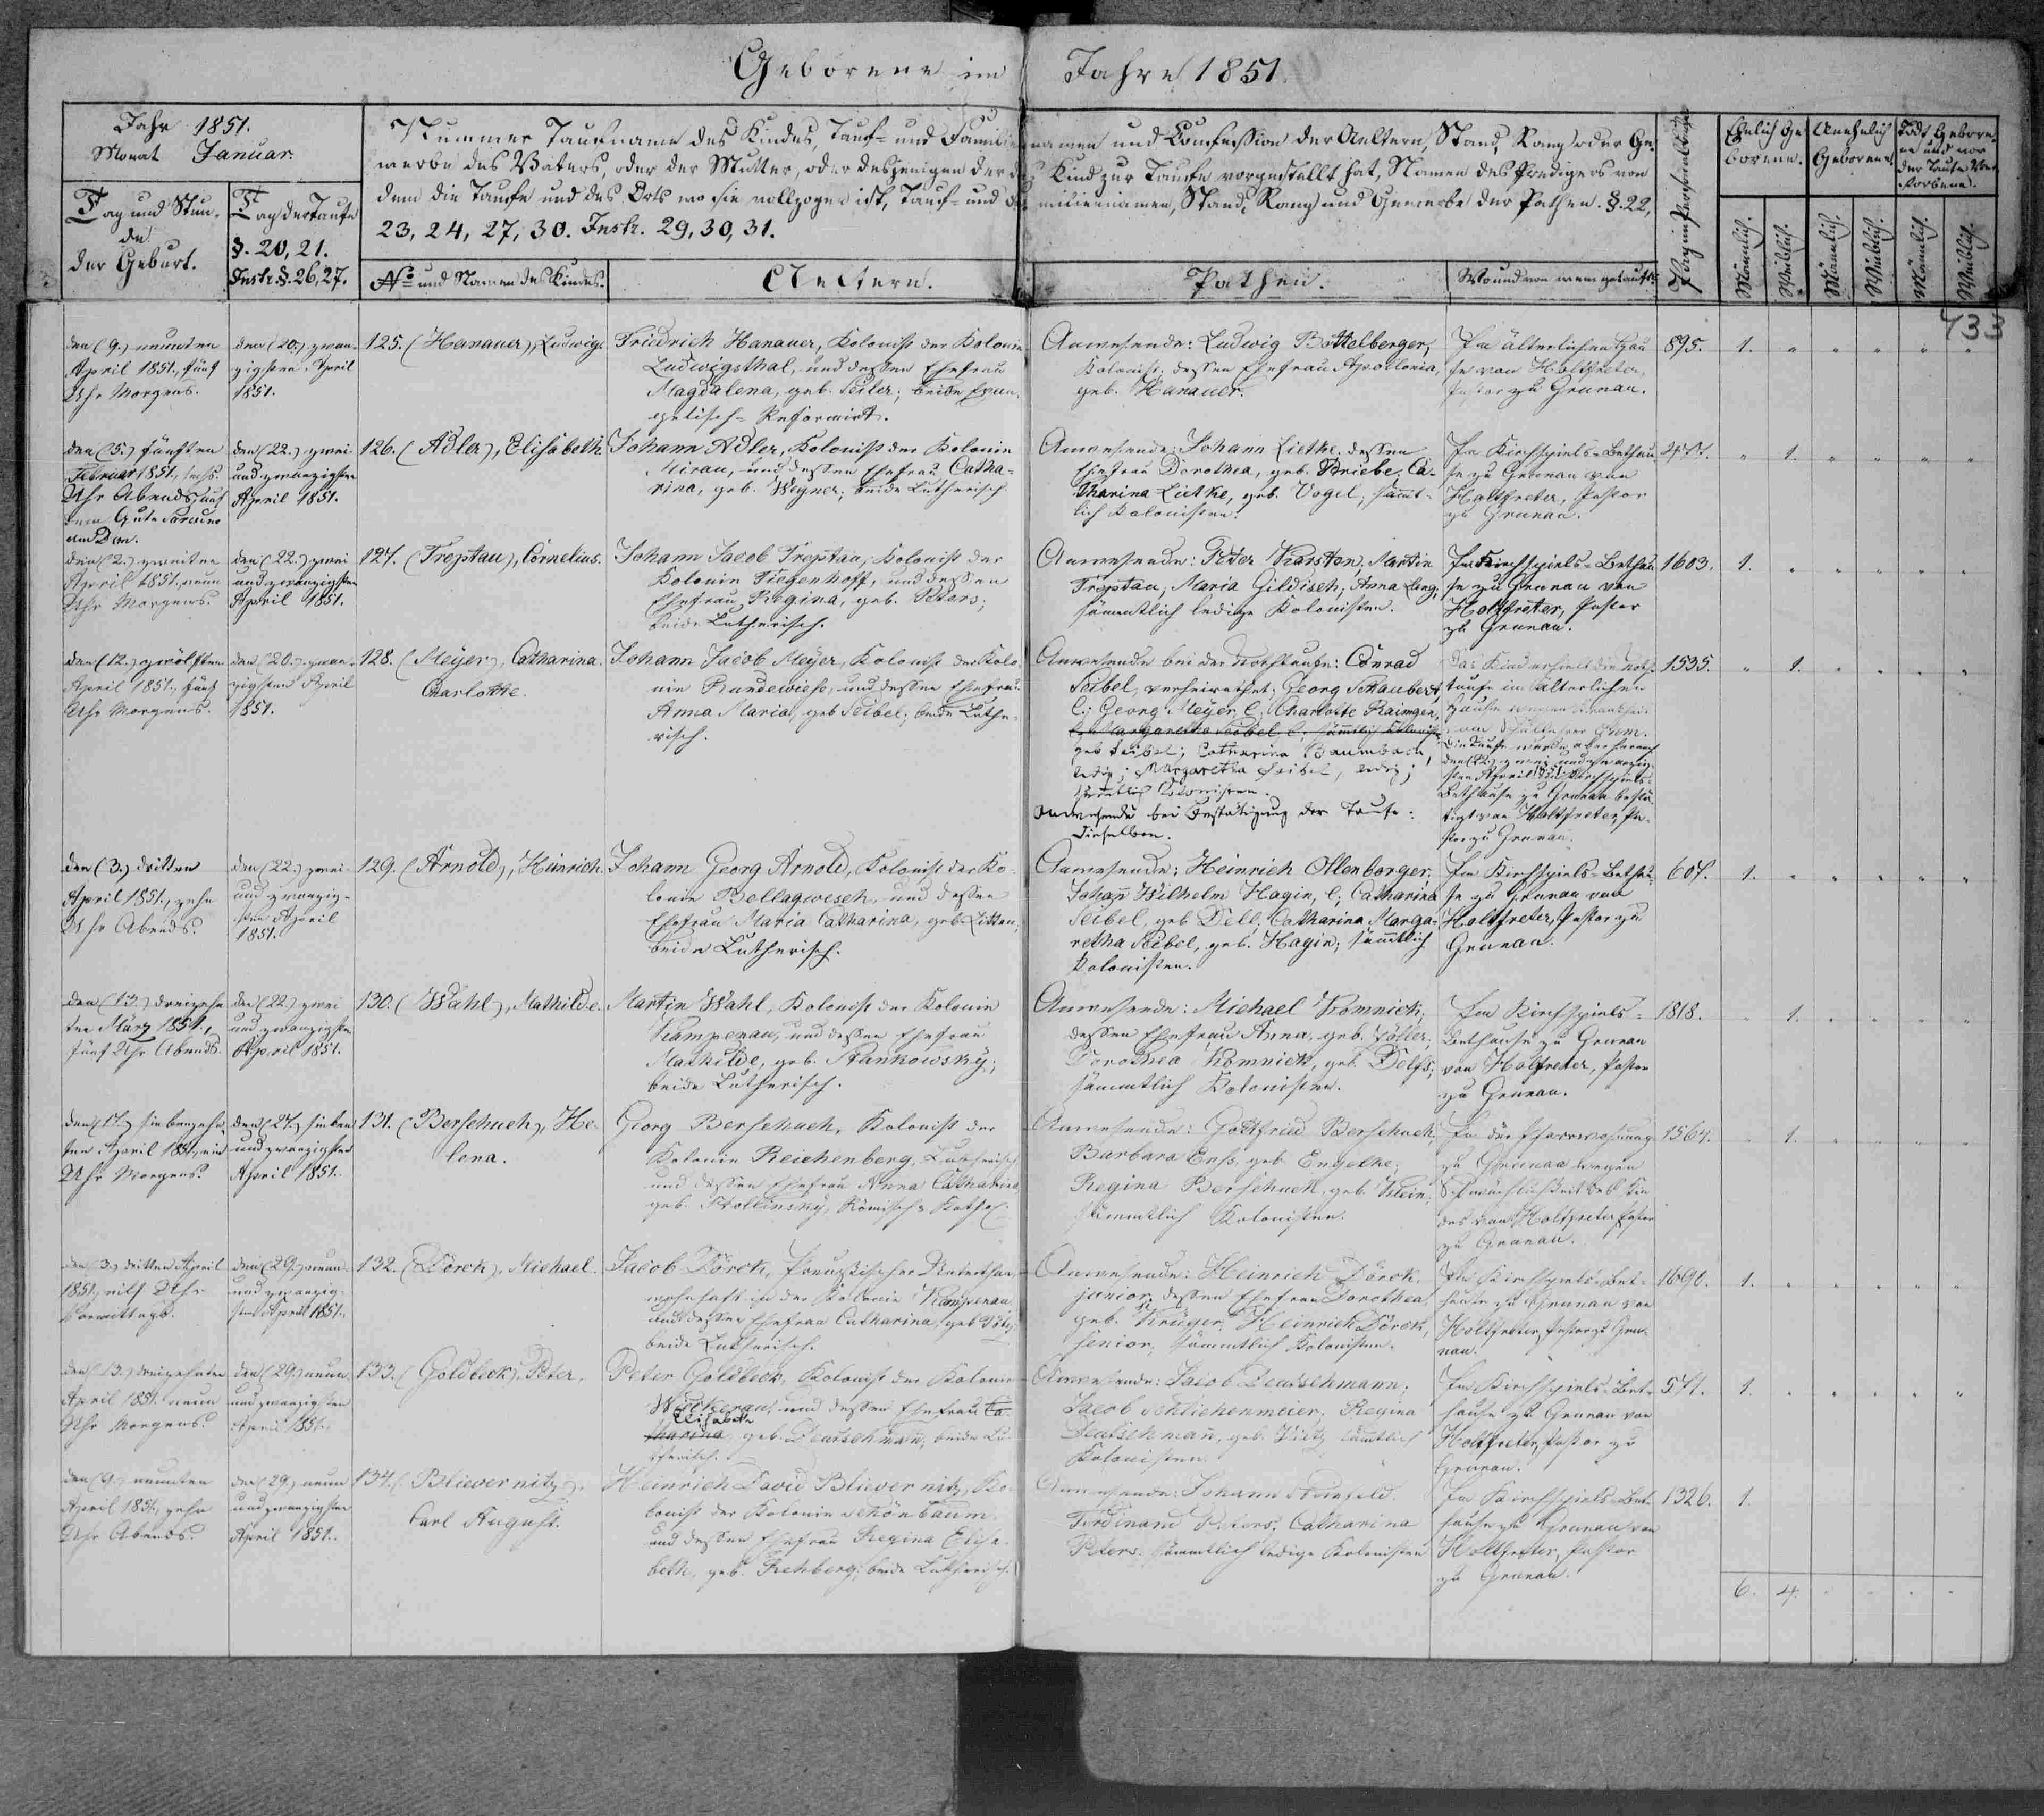 Geborene im Jahre 1851.
733
Jahr 1851.
Monat Januar.
Tag und Stun-
de
der Geburt.
Tag der Taufe
§. 20, 21.
Instr. §. 26, 27.
Nummer Taufname des Kindes, Tauf- und Familiennamen und Confession der Aeltern, Stand, Rang oder Ge-
werbe des Vaters, oder der Mutter, oder desjenigen der das Kind zur Taufe vorgestellt hat, Namen des Predigers von
dem die Taufe und des Orts wo sie vollzogen ist, Tauf- und Familiennamen, Stand, Rang und Gewerbe der Pathen. §. 22,
23, 24, 27, 30. Instr. 29, 30, 31.
No und Namen des Kindes.
Aeltern.
Pathen.
Wo und von wem getauft.
Pagina Personalbuch
Ehelich Ge-
borene.
Unehelich
Geborene.
Todt Gebore-
ne und vor
der Taufe Ver-
storbene.
Männlich.
Weiblich.
Männlich.
Weiblich.
Männlich.
Weiblich.
den (9.) neunten
April 1851., fünf
Uhr Morgens.
den (20.) zwan-
zigsten April
1851.
125. (Hanauer), Ludwig.
Friedrich Hanauer, Kolonist der Kolonie
Ludwigsthal, und dessen Ehefrau
Magdalena, geb. Seiler; beide Evan-
gelisch-Reformirt.
Anwesende: Ludwig Bottelberger,
Kolonist; dessen Ehefrau Apollonia,
geb. Hanauer.
Im älterlichen Hau-
se von Holtfreter,
Pastor zu Grunau.
895. 1. " " " " "
den (5.) fünften
Februar 1851., sechs
Uhr Abends auf
dem Gute
am Don.
den (22.) zwei-
und zwanzigsten
April 1851.
126. (Adler), Elisabeth.
Johann Adler, Kolonist der Kolonie
Mirau, und dessen Ehefrau Catha-
rina, geb. Wegner; beide Lutherisch.
Anwesende: Johann Lietke, dessen
Ehefrau Dorothea, geb. Briebe; Ca-
tharina Lietke, geb. Vogel; sämmt-
lich Kolonisten.
Im Kirchspiels-Bethau-
se zu Grunau von
Holtfreter, Pastor
zu Grunau.
" 1. " " " "
den (2.) zweiten
April 1851., neun
Uhr Morgens.
den (22.) zwei
und zwanzigsten
April 1851.
127. (Treptau), Cornelius.
Johann Jacob Treptau, Kolonist der
Kolonie Tiegenhoff, und dessen
Ehefrau Regina, geb. Peters;
beide Lutherisch.
Anwesende: Peter Karsten, Martin
Treptau, Maria Gildisch, Anna Lang;
sämmtlich ledige Kolonisten.
Im Kirchspiels-Bethau
se zu Grunau von
Holtfreter, Pastor
zu Grunau.
1603. 1. " " " " "
den (12.) zwölften
April 1851., fünf
Uhr Morgens.
den (20.) zwan-
zigsten April
1851.
128. (Meyer), Catharina
Charlotte.
Johann Jacob Meyer, Kolonist der Kolo-
nie Rundewiese, und dessen Ehefrau
Anna Maria, geb. Seibel; beide Luthe-
risch.
Anwesende bei der Nothtaufe: Conrad
Seibel, verheirathet; Georg Schaubert,
l; Georg Meyer, l; Charlotte Raimgen,
l; Margaretha Seibel, l; sämmtlich Kolonist
geb. Seibel; Catharina Baumbach,
ledig; Margaretha Seibel, ledig;
sämmtlich Kolonisten.
Anwesende bei Bestätigung der Taufe:
Dieselben.
Das Kind erhielt die Noth-
taufe im älterlichen
Hause wegen Krankheit
vom Schullehrer
Die Taufe wurde aber hernach
den (22.) zwei und zwanzig-
sten April 1851 im Kirchspiels-
Bethause zu Grunau bestä-
tigt von Holtfreter, Pa-
stor zu Grunau.
1535. " 1. " " " "
den (3.) dritten
April 1851., zehn
Uhr Abends.
den (22.) zwei-
und zwanzig-
sten April
1851.
129. (Arnold), Heinrich.
Johann Georg Arnold, Kolonist der Ko-
lonie Bellagwesch, und dessen
Ehefrau Maria Catharina, geb. Litten;
beide Lutherisch.
Anwesende: Heinrich Ollenberger;
Johann Wilhelm Hagin, l; Catharina
Seibel, geb. Dell; Catharina Marga-
retha Seibel, geb. Hagin; sämmtlich
Kolonisten.
Im Kirchspiels-Bethau-
se zu Grunau von
Holtfreter, Pastor zu
Grunau.
607. 1. " " " " "
den (13.) dreizehn
ten März 1851.,
fünf Uhr Abends.
den (22.) zwei
und zwanzigsten
April 1851.
130. (Wahl), Mathilde.
Martin Wahl, Kolonist der Kolonie
Kampenau, und dessen Ehefrau
Mathilde, geb. Stankowsky;
beide Lutherisch.
Anwesende: Michael Komnick,
dessen Ehefrau Anna, geb. Zoller;
Dorothea Komnick, geb. Delfs;
sämmtlich Kolonisten.
Im Kirchspiels-
Bethause zu Grunau
von Holtfreter, Pastor
zu Grunau.
1818. " 1. " " " "
den (17.) siebenzehn
ten April 1851., ein
Uhr Morgens.
den (27.) sieben
und zwanzigsten
April 1851.
131. (Berschuch), He-
lena.
Georg Berschuch, Kolonist der
Kolonie Reichenberg, Lutherisch
und dessen Ehefrau Anna Catharina
geb. Stollinsky, Römisch-Kathol:
Anwesende: Gottfried Berschuch,
Barbara Enss, geb. Engelke;
Regina Berschuch, geb. Klein;
sämmtlich Kolonisten.
In der Pfarrwohnung
zu Grunau wegen
Schwächlichkeit des Kin
des von Holtfreter, Pastor
zu Grunau.
1564. " 1. " " " "
den (3.) dritten April
1851., eilf Uhr
Vormittags.
den (29.) neun-
und zwanzig-
sten April 1851.
132. (Dörck), Michael.
Jacob Dörck, Preussischer Unterthan,
wohnhaft in der Kolonie Kampenau
und dessen Ehefrau Catharina, geb.
beide Lutherisch.
Anwesende: Heinrich Dörck
junior, dessen Ehefrau Dorothea,
geb. Krüger; Heinrich Dörck,
senior; sämmtlich Kolonisten.
Im Kirchspiels-Bet-
hause zu Grunau von
Holtfreter, Pastor zu Gru-
nau.
1690. 1. " " " " "
den (13.) dreizehnten
April 1851. neun
Uhr Morgens.
den (29.) neun
und zwanzigsten
April 1851.
133. (Goldbeck), Peter.
Peter Goldbeck, Kolonist der Kolonie
Wickerau, und dessen Ehefrau Ca-
Elisabeth
tharina geb. Deutschmann, beide Lu-
therisch.
Anwesende: Jacob Deutschmann;
Jacob Schliehenmeier; Regina
Deutschmann, geb. Vietz sämtlich
Kolonisten.
Im Kirchspiels-Bet-
hause zu Grunau von
Holtfreter, Pastor zu
Grunau.
571. 1. " " " " "
den (9.) neunten
April 1851., zehn
Uhr Abends.
den (29.) neun
und zwanzigsten
April 1851.
134. (Bliewernitz),
Carl August.
Heinrich David Bliewernitz, Ko-
lonist der Kolonie Schönbaum
und dessen Ehefrau Regina Elisa-
beth, geb. Rehberg; beide Lutherisch.
Anwesende: Johann
Ferdinand Peters, Catharina
Peters. sämmtlich ledige Kolonisten
Im Kirchspiels-Bet-
hause zu Grunau von
Holtfreter, Pastor
zu Grunau.
1326. 1.
6. 4. " " " "